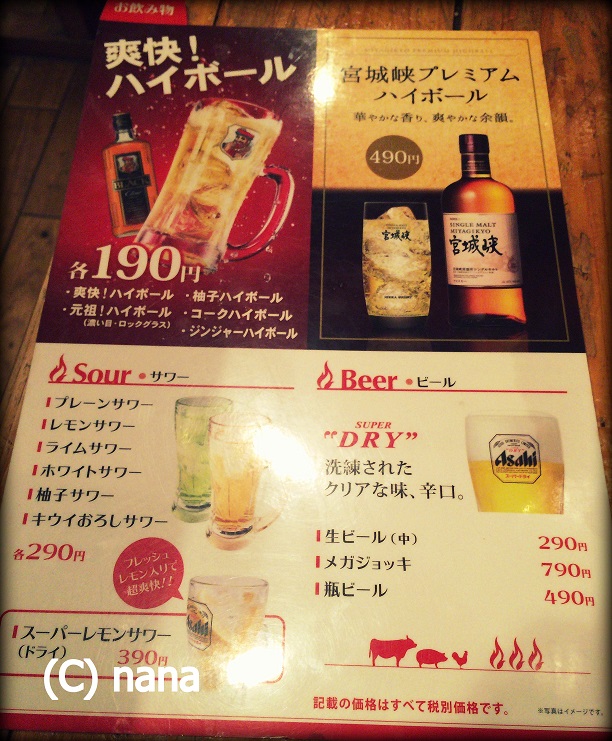 お飲み物
爽快!
ハイボール
BLACK
各190円
・爽快!ハイボール ・柚子ハイボール
・元祖!ハイボール ・コークハイボール
(濃い目・ロックグラス) ・ジンジャーハイボール
宮城峡プレミアム
ハイボール
華やかな香り。爽やかな余韻。
490円
宮城峡
SINGLE MALT
MIYAGIKYO
宮城峡
Sour・サワー
プレーンサワー
レモンサワー
ライムサワー
ホワイトサワー
柚子サワー
キウイおろしサワー
各290円
フレッシュ
レモン入りで
超爽快!!
Asahi
スーパーレモンサワー
(ドライ) 390円
Beer・ビール
SUPER
"DRY"
洗練された
クリアな味、辛口。
Asahi
生ビール(中) 290円
メガジョッキ 790円
瓶ビール 490円
記載の価格はすべて税別価格です。
※写真はイメージです。
(C) nana